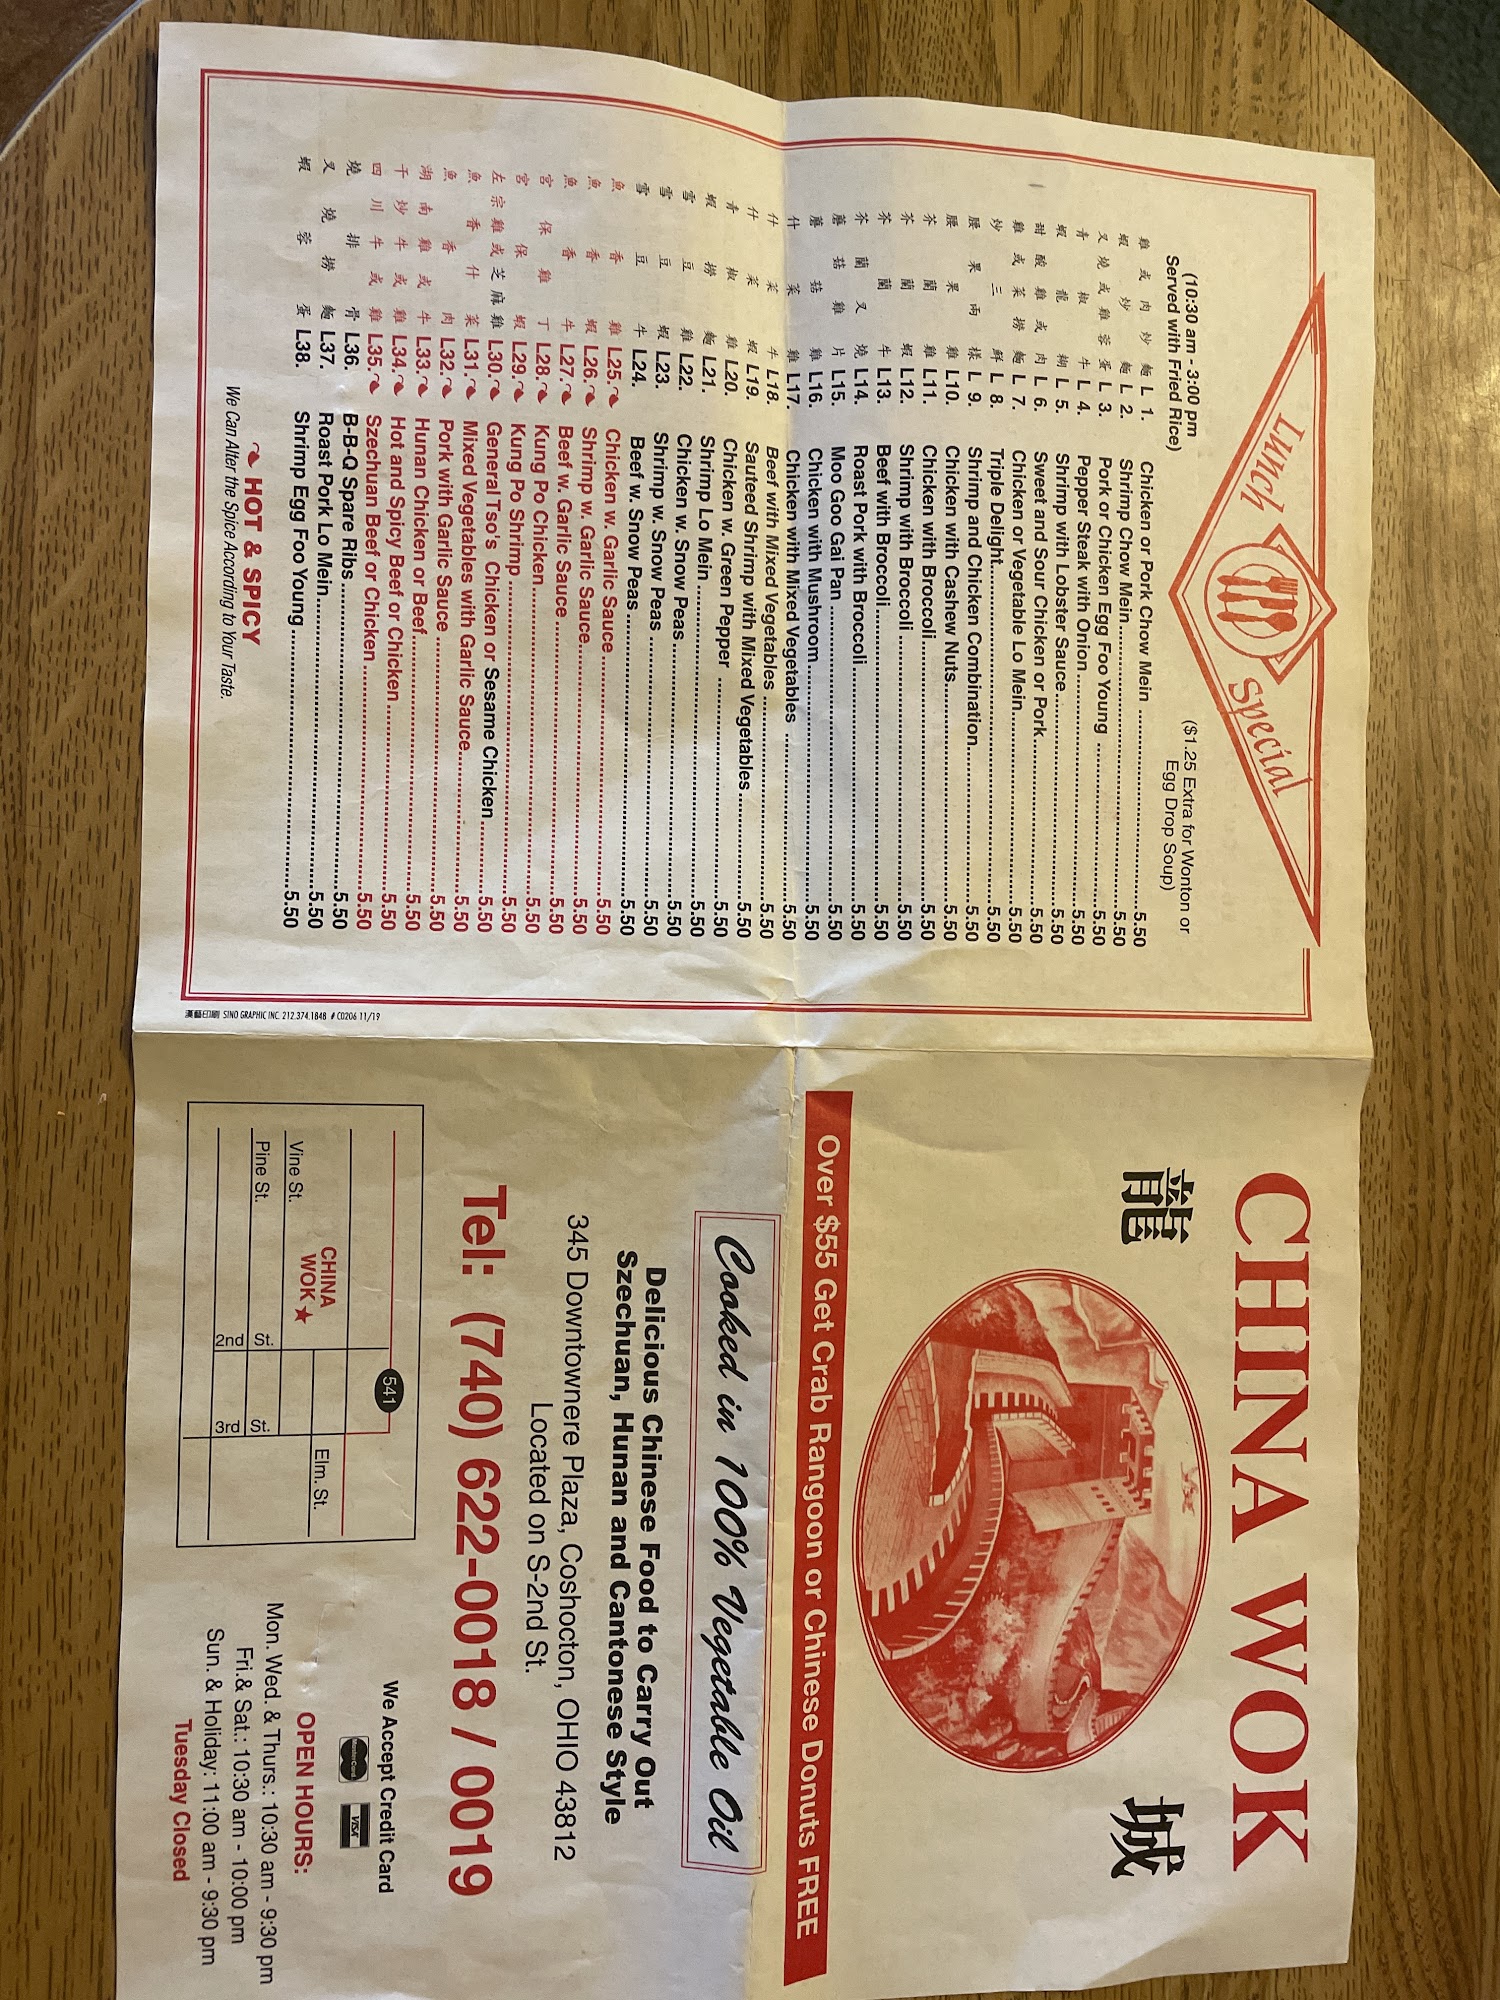 Lunch Special
(10:30 am - 3:00 pm
Served with Fried Rice)
($1.25 Extra for Wonton or
Egg Drop Soup)
雞 或 肉 炒 麵 L 1. Chicken or Pork Chow Mein 5.50
蝦 炒 麵 L 2. Shrimp Chow Mein 5.50
叉 燒 或 雞 蓉 蛋 L 3. Pork or Chicken Egg Foo Young 5.50
青 椒 牛 L 4. Pepper Steak with Onion 5.50
蝦 龍 糊 L 5. Shrimp with Lobster Sauce 5.50
甜 酸 雞 或 肉 L 6. Sweet and Sour Chicken or Pork 5.50
雞 或 菜 撈 麵 L 7. Chicken or Vegetable Lo Mein 5.50
炒 三 鮮 L 8. Triple Delight 5.50
腰 果 兩 樣 L 9. Shrimp and Chicken Combination 5.50
腰 果 雞 L10. Chicken with Cashew Nuts 5.50
芥 蘭 雞 L11. Chicken with Broccoli 5.50
芥 蘭 蝦 L12. Shrimp with Broccoli 5.50
芥 蘭 牛 L13. Beef with Broccoli 5.50
芥 蘭 叉 燒 L14. Roast Pork with Broccoli 5.50
蘑 菇 雞 片 L15. Moo Goo Gai Pan 5.50
蘑 菇 雞 L16. Chicken with Mushroom 5.50
什 菜 雞 L17. Chicken with Mixed Vegetables 5.50
什 菜 牛 L18. Beef with Mixed Vegetables 5.50
什 菜 蝦 L19. Sauteed Shrimp with Mixed Vegetables 5.50
青 椒 雞 L20. Chicken w. Green Pepper 5.50
蝦 撈 麵 L21. Shrimp Lo Mein 5.50
雪 豆 雞 L22. Chicken w. Snow Peas 5.50
雪 豆 蝦 L23. Shrimp w. Snow Peas 5.50
雪 豆 牛 L24. Beef w. Snow Peas 5.50
魚 香 雞 L25. Chicken w. Garlic Sauce 5.50
魚 香 蝦 L26. Shrimp w. Garlic Sauce 5.50
魚 香 牛 L27. Beef w. Garlic Sauce 5.50
宮 保 雞 丁 L28. Kung Po Chicken 5.50
宮 保 蝦 L29. Kung Po Shrimp 5.50
左 宗 雞 或 芝 麻 雞 L30. General Tso's Chicken or Sesame Chicken 5.50
魚 香 什 菜 L31. Mixed Vegetables with Garlic Sauce 5.50
魚 香 肉 L32. Pork with Garlic Sauce 5.50
湖 南 雞 或 牛 L33. Hunan Chicken or Beef 5.50
干 炒 牛 或 雞 L34. Hot and Spicy Beef or Chicken 5.50
四 川 牛 或 雞 L35. Szechuan Beef or Chicken 5.50
燒 排 骨 L36. B-B-Q Spare Ribs 5.50
叉 燒 撈 麵 L37. Roast Pork Lo Mein 5.50
蝦 蓉 蛋 L38. Shrimp Egg Foo Young 5.50
HOT & SPICY
We Can Alter the Spice According to Your Taste.
漢藝印刷 SINO GRAPHIC INC. 212.374.1848 # C0206 11/19
CHINA WOK
龍 城
Over $55 Get Crab Rangoon or Chinese Donuts FREE
Cooked in 100% Vegetable Oil
Delicious Chinese Food to Carry Out
Szechuan, Hunan and Cantonese Style
345 Downtownere Plaza, Coshocton, OHIO 43812
Located on S-2nd St.
Tel: (740) 622-0018 / 0019
541
CHINA
WOK
Elm. St.
Vine St.
Pine St.
St.
St.
2nd
3rd
We Accept Credit Card
MasterCard
VISA
OPEN HOURS:
Mon. Wed. & Thurs.: 10:30 am - 9:30 pm
Fri.& Sat.: 10:30 am - 10:00 pm
Sun. & Holiday: 11:00 am - 9:30 pm
Tuesday Closed